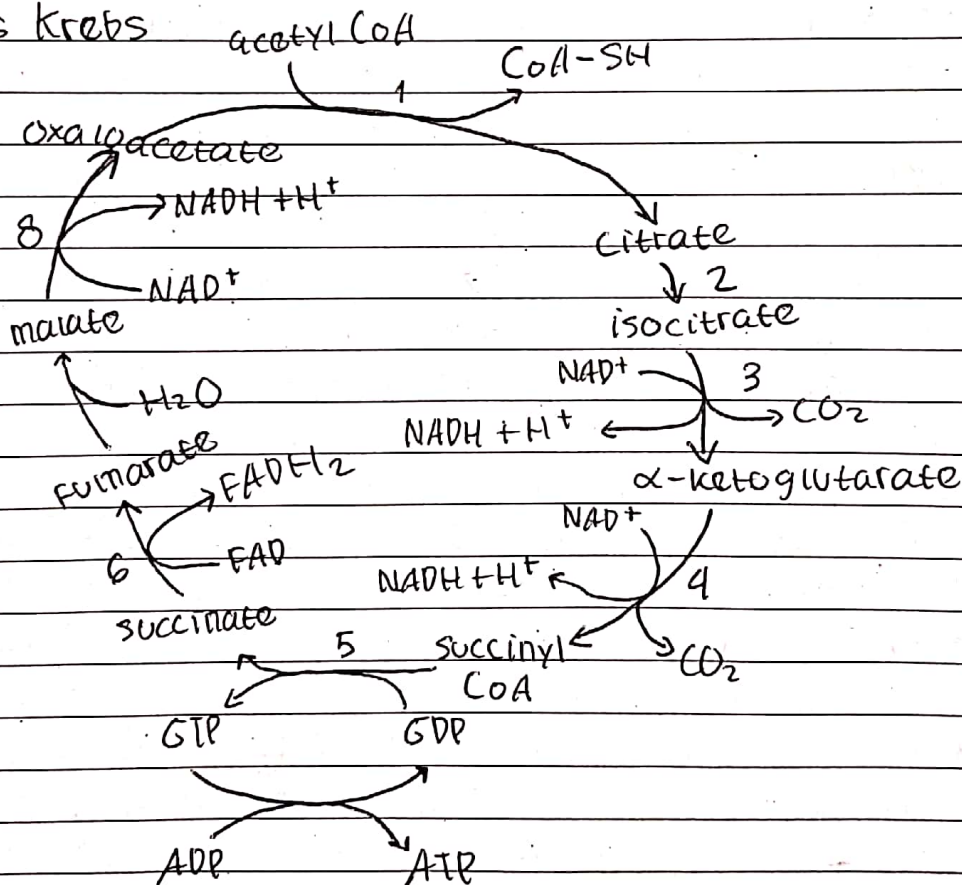 s Krebs
acetyl CoA
CoA-SH
1
Oxaloacetate
NADH + H⁺
8
citrate
NAD⁺
2
malate
isocitrate
NAD⁺
3
H₂O
CO₂
NADH + H⁺
Fumarate
FADH₂
α-ketoglutarate
NAD⁺
6
FAD
NADH + H⁺
4
succinate
5
succinyl
CoA
CO₂
GTP
GDP
ADP
ATP